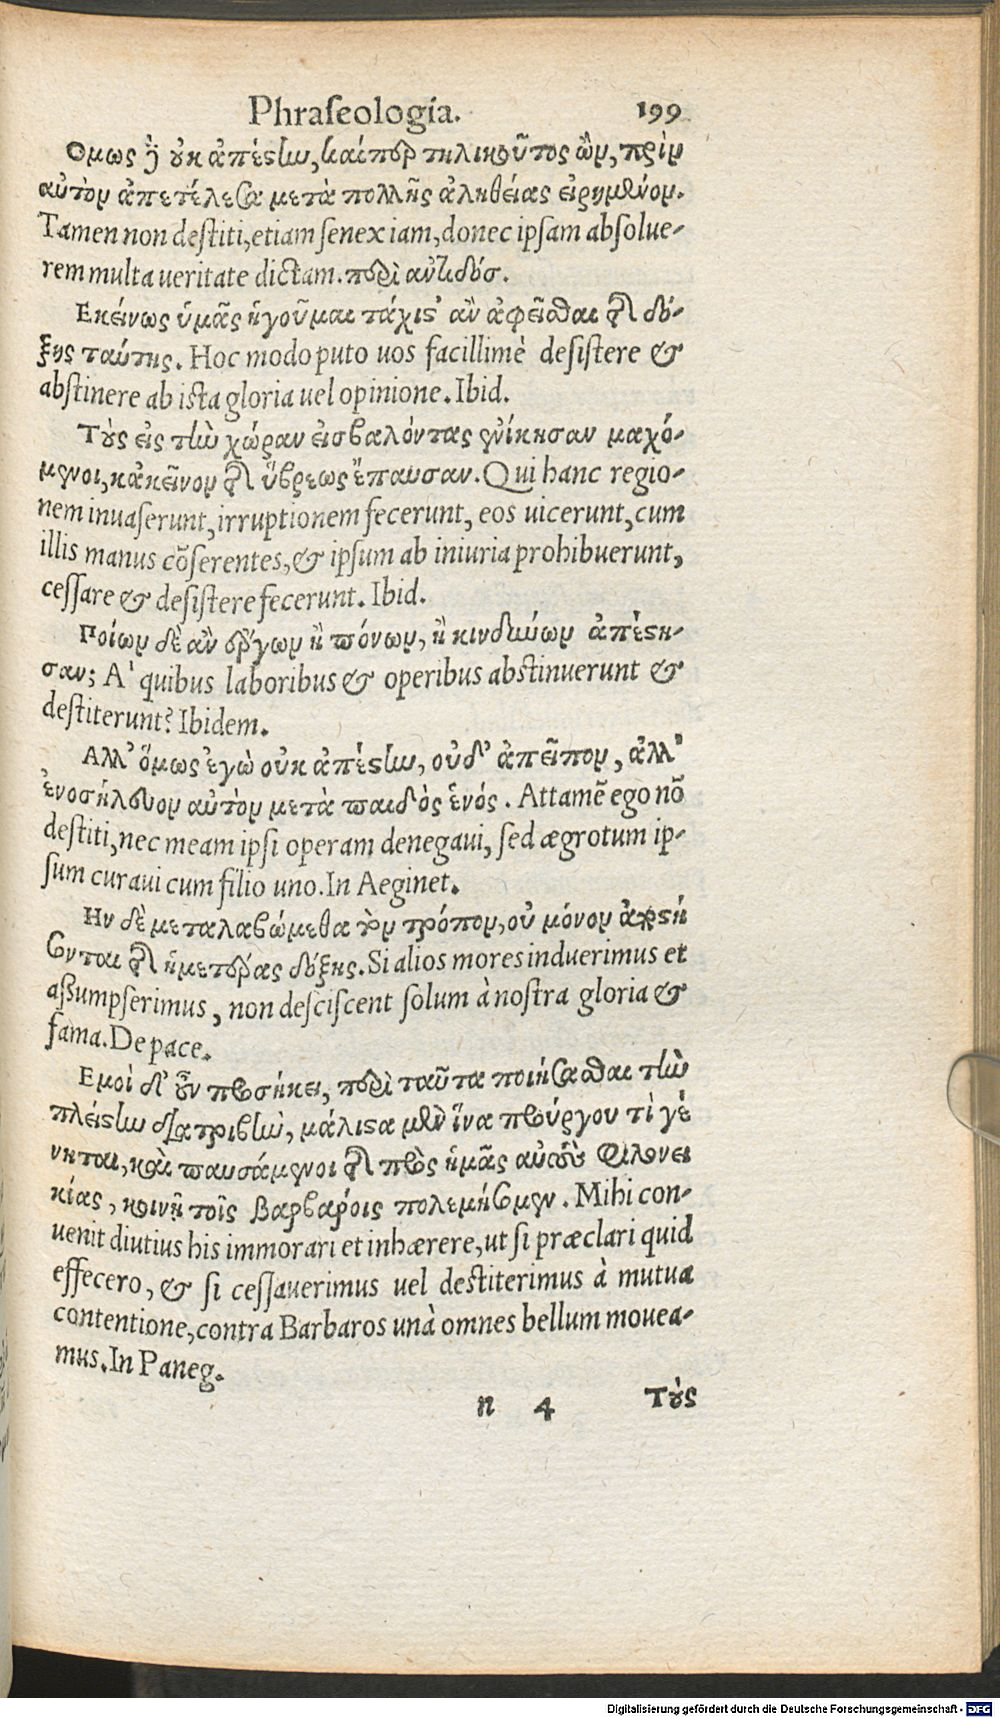 Phraſeologia. 199
Ομως δὲ οὐκ ἀπέστην, καίπερ τηλικοῦτος ὢν, πρὶν
αὐτὸν ἀπετέλεσα μετὰ πολλῆς ἀληθείας εἰρημένον.
Tamen non deſtiti, etiam ſenex iam, donec ipſam abſolue-
rem multa ueritate dictam. περὶ ἀντιδόσ.
Εκείνως ὑμᾶς ἡγοῦμαι τάχιστ' ἂν ἀφεῖσθαι τῆς δό-
ξης ταύτης. Hoc modo puto uos facillimè deſiſtere &
abſtinere ab iſta gloria uel opinione. Ibid.
Τοὺς εἰς τὴν χώραν εἰσβαλόντας ἐνίκησαν μαχό-
μενοι, κἀκεῖνον τῆς ὕβρεως ἔπαυσαν. Qui hanc regio-
nem inuaſerunt, irruptionem fecerunt, eos uicerunt, cum
illis manus cõſerentes, & ipſum ab iniuria prohibuerunt,
ceſſare & deſiſtere fecerunt. Ibid.
Ποίων δὲ ἂν ἔργων ἢ πόνων, ἢ κινδύνων ἀπέστη-
σαν; A' quibus laboribus & operibus abſtinuerunt &
deſtiterunt? Ibidem.
Αλλ' ὅμως ἐγὼ οὐκ ἀπέστην, οὐδ' ἀπεῖπον, ἀλλ'
ἐνοσήλευον αὐτὸν μετὰ παιδὸς ἑνός. Attamẽ ego nõ
deſtiti, nec meam ipſi operam denegaui, ſed ægrotum ip-
ſum curaui cum filio uno. In Aeginet.
Ην δὲ μεταλαβώμεθα τὸν τρόπον, οὐ μόνον
σονται τῆς ἡμετέρας δόξης. Si alios mores induerimus et
aſſumpſerimus, non deſciſcent ſolum à noſtra gloria &
fama. De pace.
Εμοὶ δ' οὖν προσήκει, περὶ ταῦτα ποιήσασθαι τὴν
πλείστην διατριβὴν, μάλιστα μὲν ἵνα προύργου τὶ γέ
νηται, καὶ παυσάμενοι τῆς πρὸς ἡμᾶς αὐτοὺς φιλονει
κίας, κοινῇ τοῖς βαρβάροις πολεμήσωμεν. Mihi con-
uenit diutius his immorari et inhærere, ut ſi præclari quid
effecero, & ſi ceſſauerimus uel deſtiterimus à mutua
contentione, contra Barbaros unà omnes bellum mouea-
mus. In Paneg.
n 4 Τοὺς
Digitalisierung gefördert durch die Deutsche Forschungsgemeinschaft - DFG